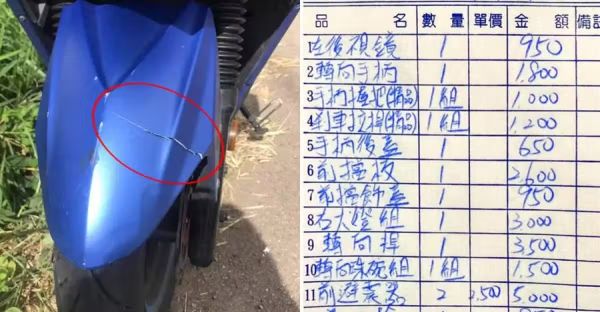 品 名 數量 單價 金 額 備註
1 左後視鏡 1 950
2 轉向手柄 1 1.800
3 手柄握把(精品) 1組 1.000
4 剎車拉桿(精品) 1組 1.200
5 手柄後蓋 1 650
6 前擋板 1 2,600
7 前擋飾蓋 1 950
8 右大燈組 1 3.000
9 轉向桿 1 3.500
10 轉向珠碗組 1組 1.500
11 前避震器 2 2.500 5.000